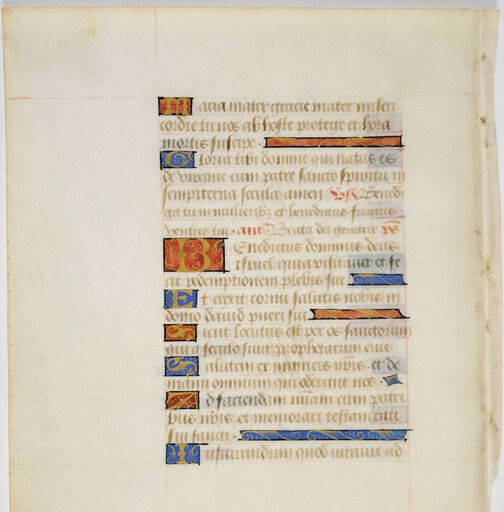 Maria mater gracie mater miseri
cordie tu nos ab hoste protege et hora
mortis suscipe.
Gloria tibi domine qui natus es
de virgine cum patre sancto spiritu in
sempiterna secula amen Vs Benedi
cta tu in mulieribz et benedictus fructus
ventris tui. ant Beata dei genitrix ps
Benedictus dominus deus
israel quia visitavit et fe
cit redemptionem plebis sue
Et erexit cornu salutis nobis in
domo david pueri sui
Sicut locutus est per os sanctorum
qui a seculo sunt prophetarum eius
Salutem ex inimicis nris et de
manu omnium qui oderunt nos
Ad faciendam miam cum patri
bus nris et memorari testamenti
sui sancti.
Iusiurandum quod iuravit ad